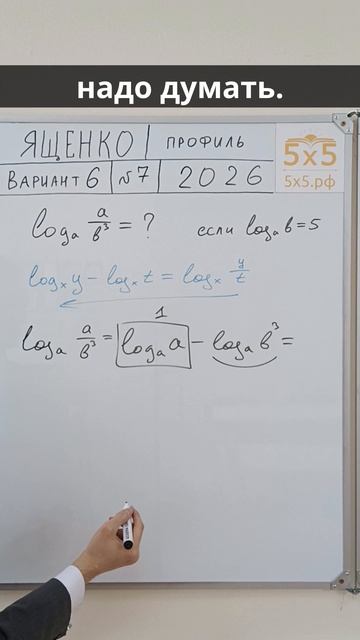 надо думать.
ЯЩЕНКО | ПРОФИЛЬ
ВАРИАНТ 6 | №7 | 2026
5x5
5x5.рф
logₐ a/b³ = ? если logₐ b = 5
logₓ y − logₓ t = logₓ y/t
1
logₐ a/b³ = logₐ a − logₐ b³ =